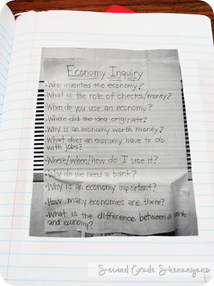 Economy Inquiry
·Who invented the economy?
·What is the role of checks/money?
·When do you use an economy?
·Where did the idea originate?
·Why is an economy worth money?
·What does an economy have to do
with jobs?
·Where/when/how do I use it?
·Why do we need a bank?
·Why is an economy important?
·How many economies are there?
·What is the difference between a
and economy?
Second Grade Shenanigans